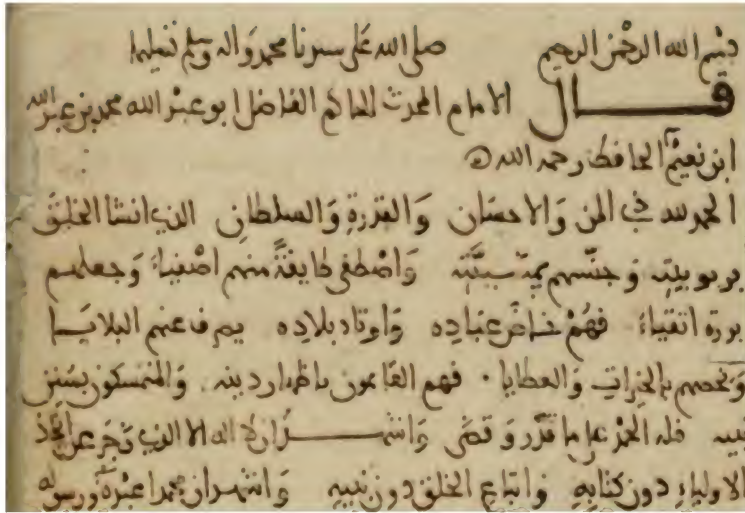 بسم الله الرحمن الرحيم صلى الله على سيدنا محمد واله وسلم تسليما
قال الامام المحدث العالم الفاضل ابو عبد الله محمد بن عبد الله
ابن نعيم الحافظ رحمه الله
الحمد لله ذي المن والاحسان والقدرة والسلطان الذي انشا الخلق
بربوبيته وجنسهم بمشيئته واصطفى طايفة منهم اصفياء وجعلهم
بررة اتقياء فهم خاض عباده واوتاد بلاده يصرف عنهم البلايا
ويخصهم بالخيرات والعطايا فهم القايمون باظهار دينه والمتمسكون بسنن
نبيه فله الحمد على ما قدر وقضى واشهد ان لا اله الا الذي زجر عن اتخاذ
الاولياء دون كتابه واتباع الخلق دون نبيه واشهد ان محمدا عبده ورسوله